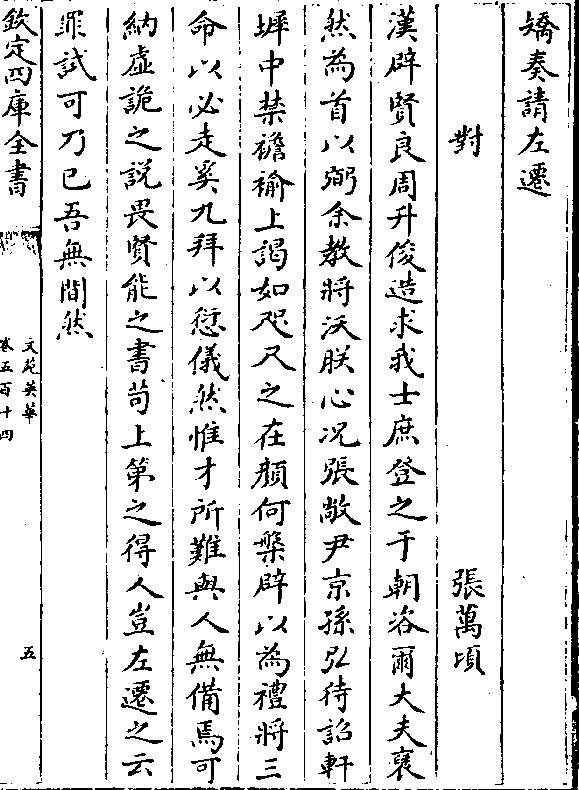 矯奏請左遷
對　張萬頃
漢辟賢良周升俊造求我士庶登之于朝洛爾大夫裒
然為首以弼余教將沃朕心况張敞尹京孫弘待詔軒
墀中禁襜褕上謁如咫尺之在顔何槃辟以為禮將三
命以必走奚九拜以愆儀然惟才所難與人無備焉可
納虛詭之説畏賢能之書苟上第之得人豈左遷之云
罪試可乃已吾無間然
欽定四庫全書
文苑英華
卷五百十四
五